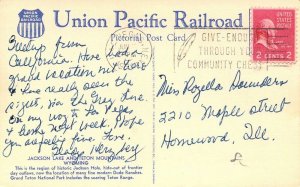 Union Pacific Railroad
Pictorial Post Card
UNION
PACIFIC
GIVE-ENOU
THROUGH YO
COMMUNITY CHEST
2 CENTS 2
Greetings from
California. Have had a
grand vacation out here
& have really seen the
sights, via the Grey Line.
on my way to
& home next week. Hope
you are fine. Love
Miss Rozella Saunders
2210 Maple street
Homewood, Ill.
JACKSON LAKE AND TETON MOUNTAINS
WYOMING
This is the region of historic Jackson Hole, hide-out of frontier
day outlaws, now the location of many fine modern Dude Ranches.
Grand Teton National Park includes the soaring Teton Range.